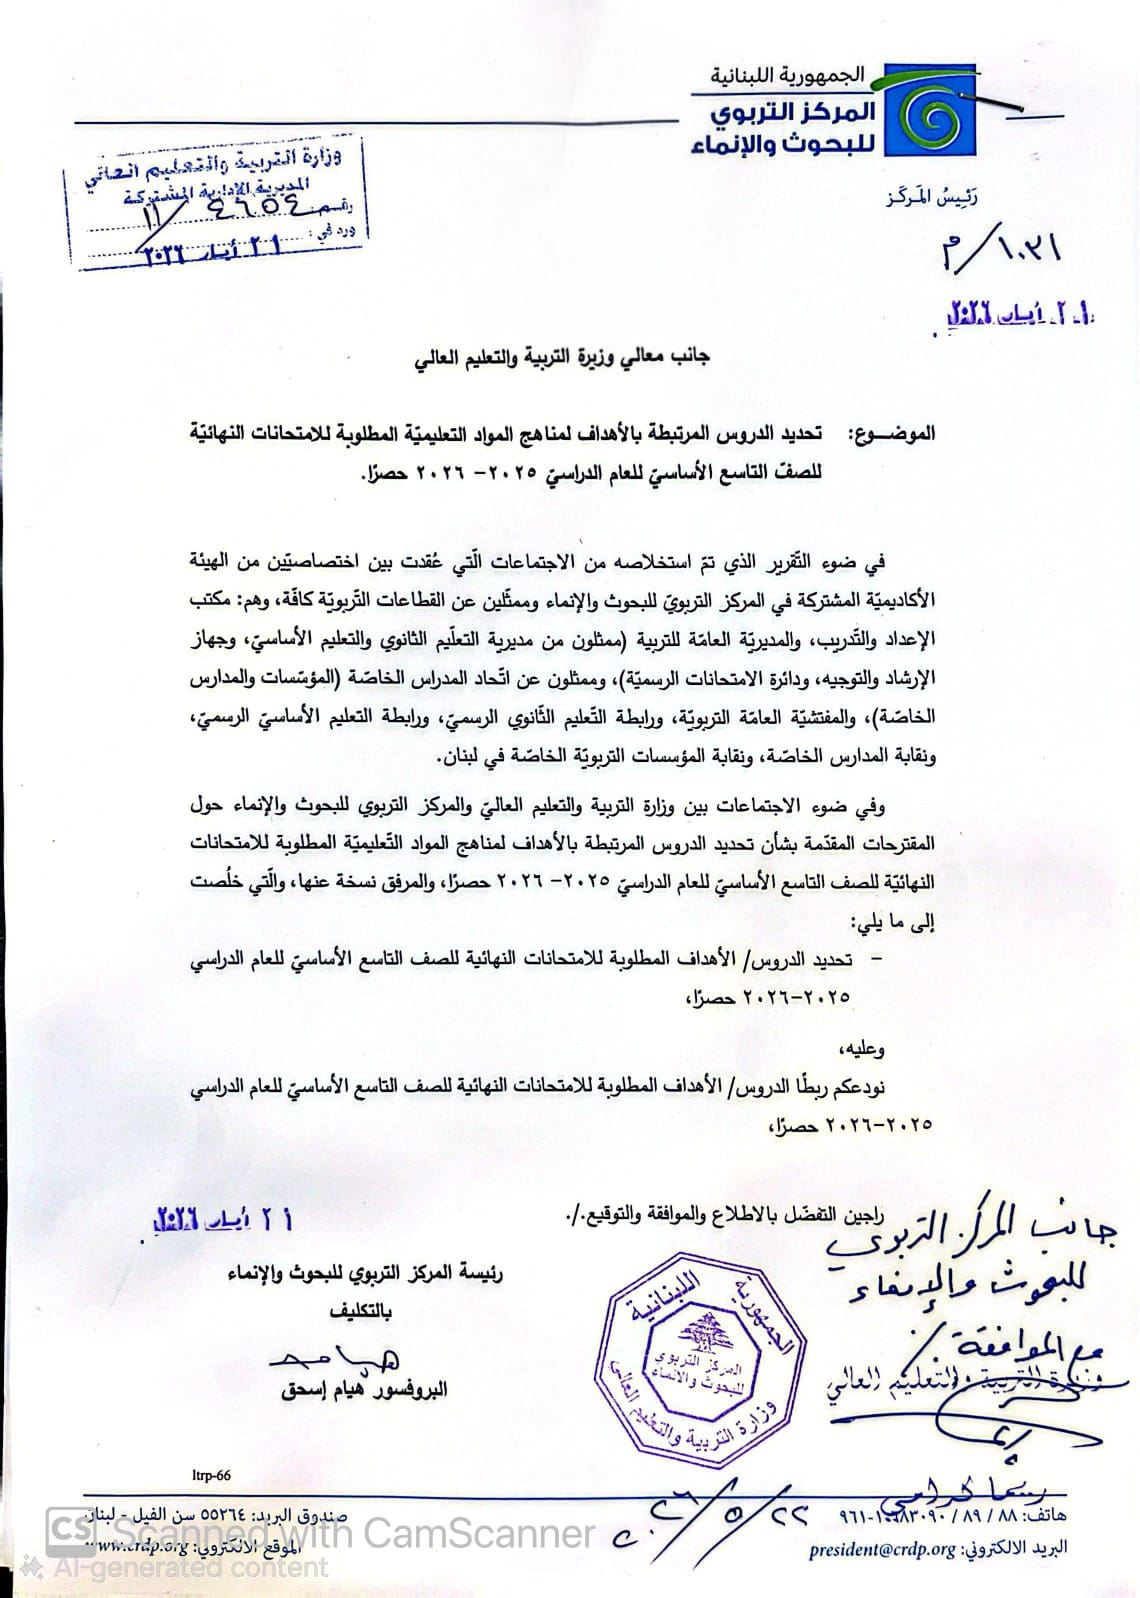 الجمهورية اللبنانية
المركز التربوي
للبحوث والإنماء
رَئيسُ المَركَز
١٠٣١/م
٢١ أيار ٢٠٢٦
وزارة التربية والتعليم العالي
المديرية الإدارية المشتركة
رقم ٤٦٥٤/١١
ورد في: ٢١ أيار ٢٠٢٦
جانب معالي وزيرة التربية والتعليم العالي
الموضــوع: تحديد الدروس المرتبطة بالأهداف لمناهج المواد التعليميّة المطلوبة للامتحانات النهائيّة
للصفّ التاسع الأساسيّ للعام الدراسيّ ٢٠٢٥– ٢٠٢٦ حصرًا.
في ضوء التّقرير الذي تمّ استخلاصه من الاجتماعات الّتي عُقدت بين اختصاصيّين من الهيئة
الأكاديميّة المشتركة في المركز التربويّ للبحوث والإنماء وممثّلين عن القطاعات التّربويّة كافّة، وهم: مكتب
الإعداد والتّدريب، والمديريّة العامّة للتربية (ممثلون من مديرية التعلّيم الثانوي والتعليم الأساسيّ، وجهاز
الإرشاد والتوجيه، ودائرة الامتحانات الرسميّة)، وممثلون عن اتّحاد المدراس الخاصّة (المؤسّسات والمدارس
الخاصّة)، والمفتشيّة العامّة التربويّة، ورابطة التّعليم الثّانوي الرسميّ، ورابطة التعليم الأساسيّ الرسميّ،
ونقابة المدارس الخاصّة، ونقابة المؤسسات التربويّة الخاصّة في لبنان.
وفي ضوء الاجتماعات بين وزارة التربية والتعليم العاليّ والمركز التربوي للبحوث والإنماء حول
المقترحات المقدّمة بشأن تحديد الدروس المرتبطة بالأهداف لمناهج المواد التّعليميّة المطلوبة للامتحانات
النهائيّة للصف التاسع الأساسيّ للعام الدراسيّ ٢٠٢٥– ٢٠٢٦ حصرًا، والمرفق نسخة عنها، والّتي خلُصت
إلى ما يلي:
– تحديد الدروس/ الأهداف المطلوبة للامتحانات النهائية للصف التاسع الأساسيّ للعام الدراسي
٢٠٢٥–٢٠٢٦ حصرًا،
وعليه،
نودعكم ربطًا الدروس/ الأهداف المطلوبة للامتحانات النهائية للصف التاسع الأساسيّ للعام الدراسي
٢٠٢٥–٢٠٢٦ حصرًا،
راجين التفضّل بالاطلاع والموافقة والتوقيع./.
٢١ أيار ٢٠٢٦
رئيسة المركز التربوي للبحوث والإنماء
بالتكليف
هيام
البروفسور هيام إسحق
الجمهورية اللبنانية
المركز التربوي
للبحوث والانماء
وزارة التربية والتعليم العالي
جانب المركز التربوي
للبحوث والإنماء
مع الموافقة./
وزيرة التربية والتعليم العالي
ريما كرامي
٢٢/٥/٢٠٢٦
ltrp-66
هاتف: ٨٨ / ٨٩ / ٦٨٣٠٩٠-١-٩٦١
صندوق البريد: ٥٥٢٦٤ سن الفيل - لبنان
البريد الالكتروني: president@crdp.org
الموقع الالكتروني: www.crdp.org
CS Scanned with CamScanner
AI-generated content